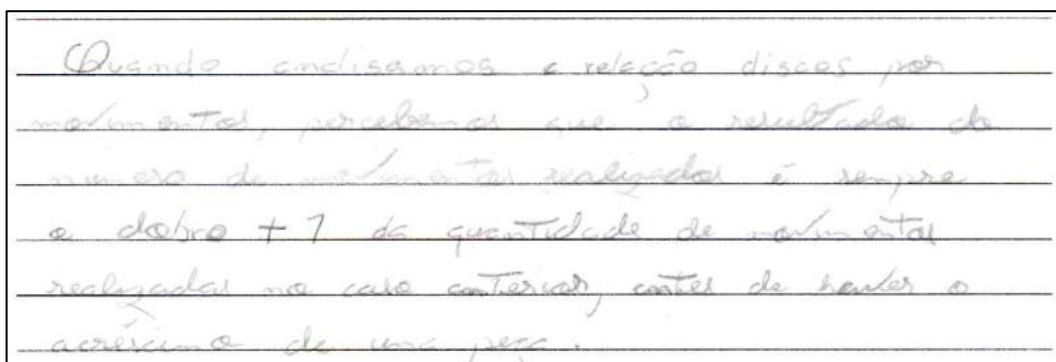 Quando analisamos a relação discos por
movimentos, percebemos que o resultado do
número de movimentos realizados é sempre
o dobro + 1 da quantidade de movimentos
realizadas no caso anterior, antes de haver o
acréscimo de uma peça.